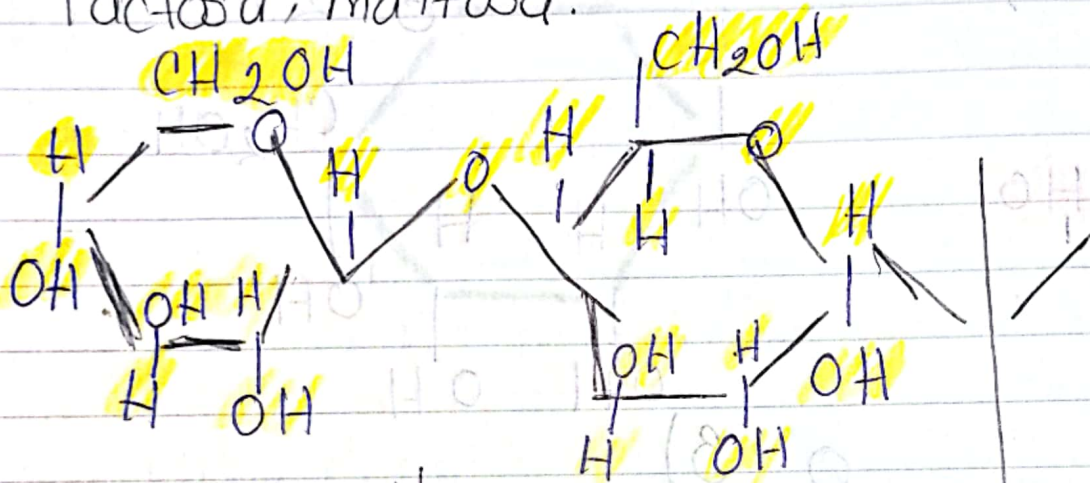 lactosa, maltosa.
CH2OH CH2OH
O H O
H H O
H H
OH OH H OH H OH
H OH H OH